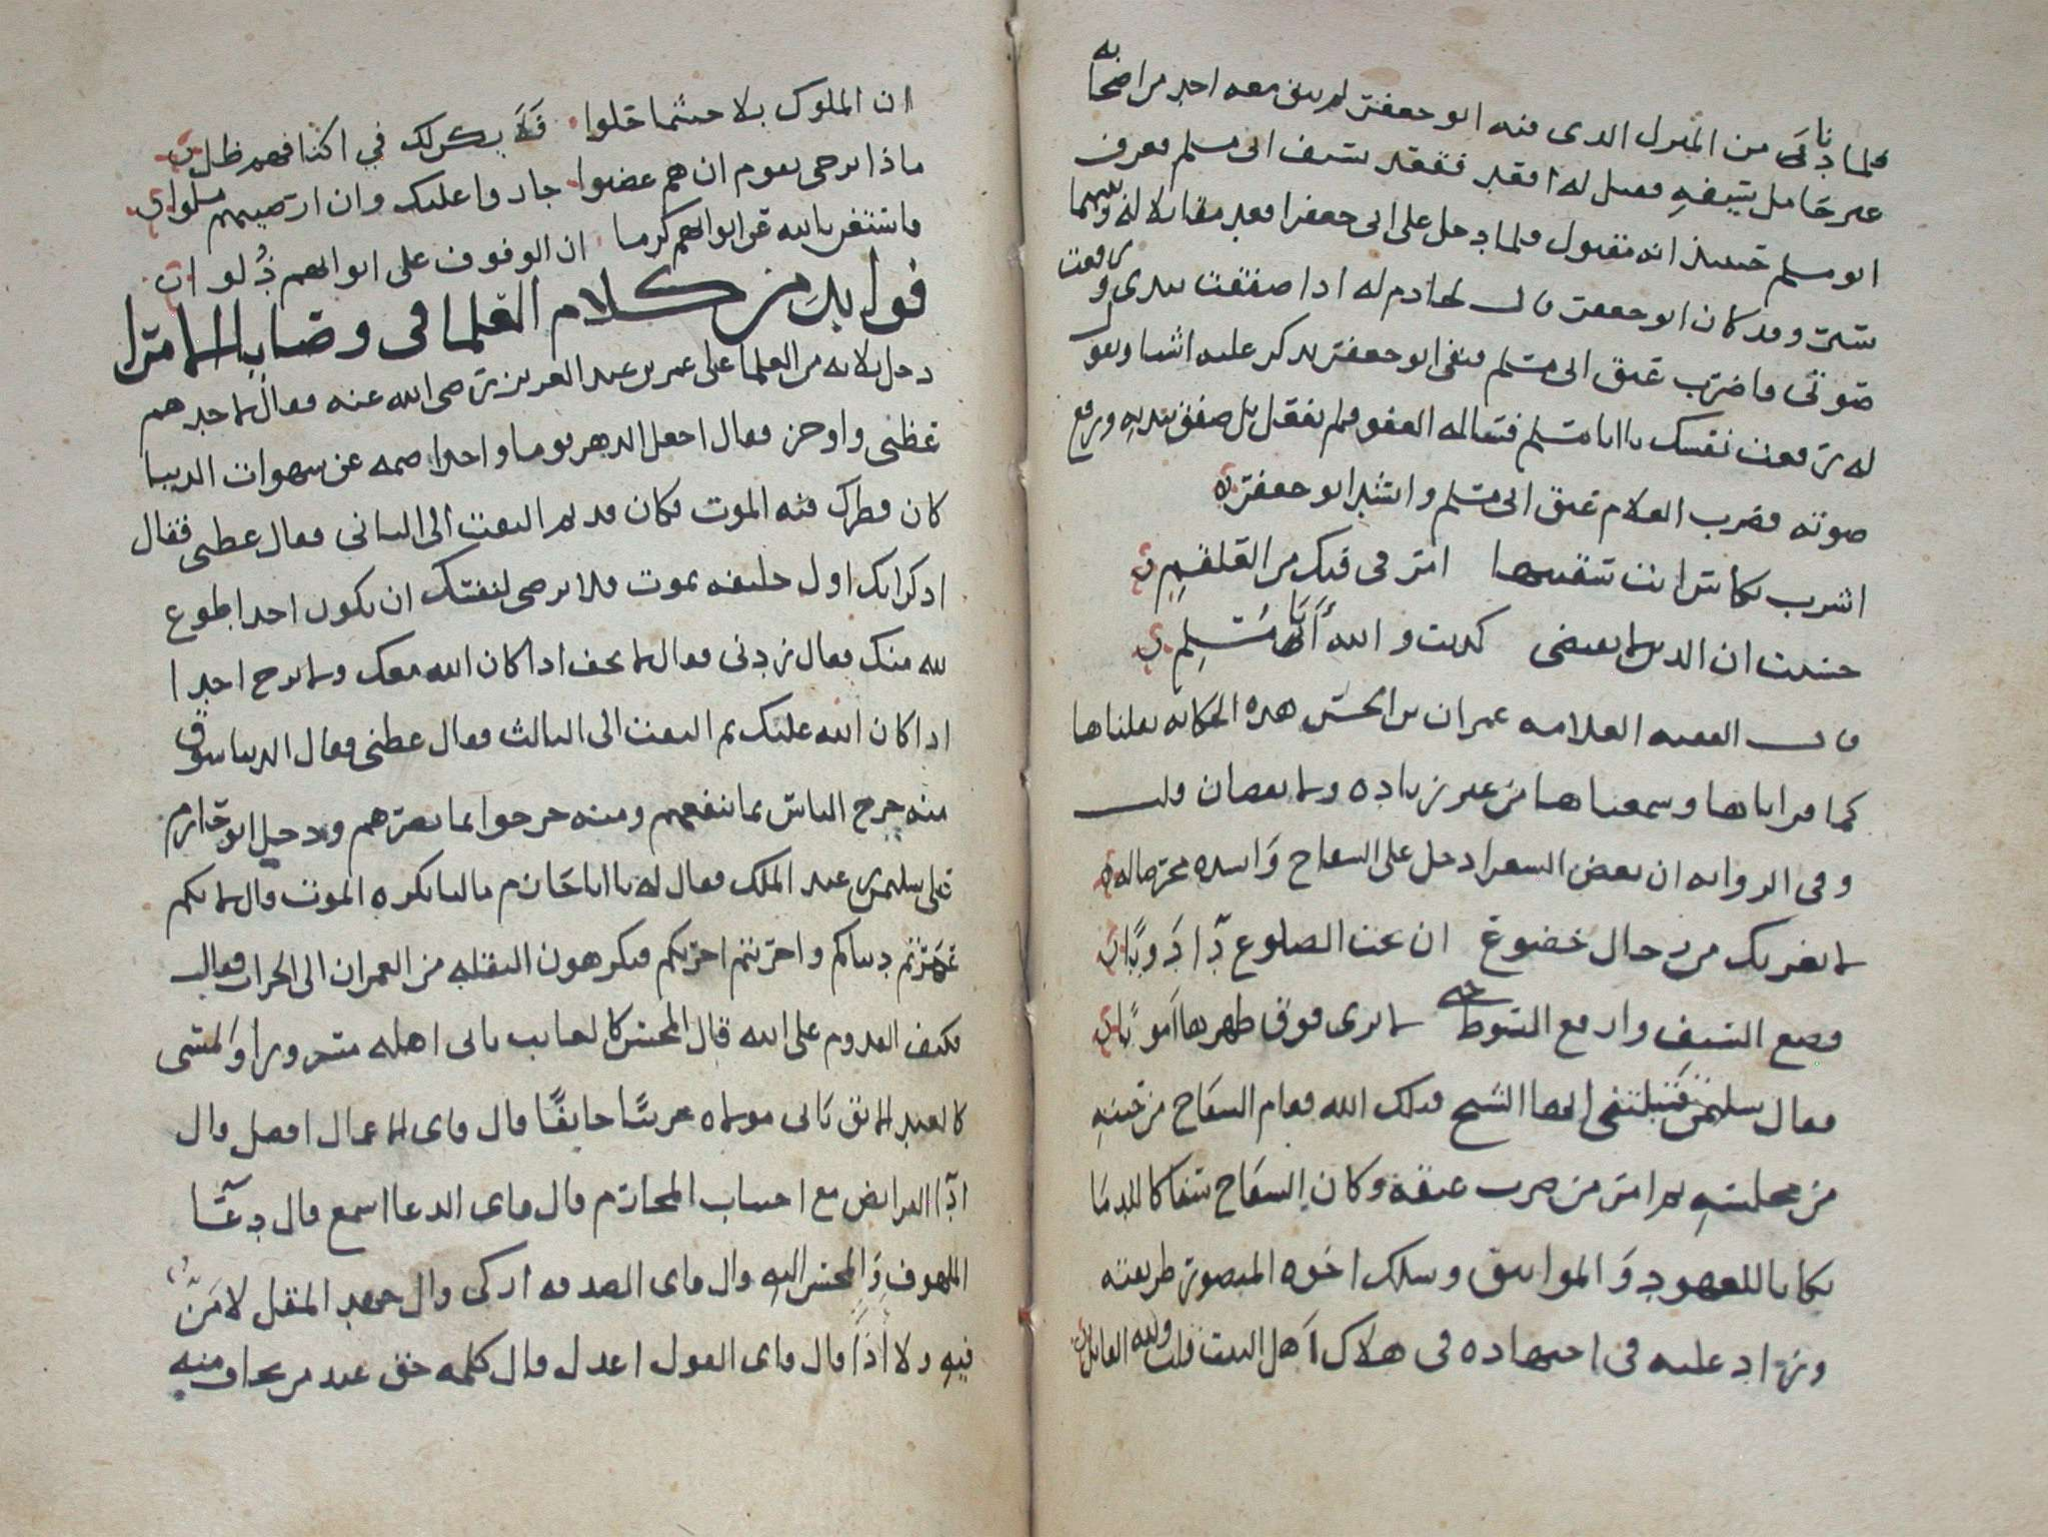 فلما دنا من المنزل الدى فيه ابو جعفر لم يبق معه احد من اصحابه
غير حامل سيفه فقيل له افقد ففقد سيف ابى مسلم فعرف
ابو مسلم حينئذ انه مقتول فلما دخل على ابى جعفر اقعد مقابلا له وبينهما
ستر وقد كان ابو جعفر قال لخادم له اذا صفقت بيدى ورفعت
صوتى فاضرب عنق ابى مسلم فبقى ابو جعفر يذكر عليه اشيا ويقول
له رفعت نفسك يا ابا مسلم فساله العفو فلم يفعل بل صفق بيديه ورفع
صوته فضرب الغلام عنق ابى مسلم وانشد ابو جعفر
اشرب بكاس انت تسقى بها امر فى فيك من العلقم
حسبت ان الدين لا يقتضى كذبت والله أبا مسلم
قال الفقيه العلامه عمران بن الحسن هذه الحكايه نقلناها
كما قراناها وسمعناها من غير زياده ولا نقصان قلت
وفى الروايه ان بعض الشعرا دخل على السفاح وانشده محرضا له
لا يغرنك من رجال خضوع ان تحت الضلوع دآ ادويا
فضع السيف وارفع السوط حتى لا ترى فوق ظهرها امويا
فقال سليمن قتلتنى ايها الشيخ قتلك الله فقام السفاح من حينه
من مجلسه ثم امر من ضرب عنقه وكان السفاح سفاكا للدما
نكاثا للعهود والمواثيق وسلك اخوه المنصور طريقته
وزاد عليه فى اجتهاده فى هلاك اهل البيت قلت ولله القايل
ان الملوك بلا حيثما حلوا فلا يكن لك في اكنافهم ظل
ماذا ترجى بقوم ان هم غضبوا جاروا عليك وان ارضيتهم ملوا
فاستغن بالله عن ابوابهم كرما ان الوقوف على ابوابهم ذل
فوايد من كلام العلما فى وصايا الامرا
دخل ثلاثه من العلما على عمر بن عبد العزيز رضى الله عنه فقال لاحدهم
عظنى واوجز فقال اجعل الدهر يوما واحدا صمه عن شهوات الدنيا
كان فطرك فيه الموت فكان قد ثم التفت الى الثانى فقال عظنى فقال
اذكر انك اول خليفه يموت فلا ترضى لنفسك ان يكون احد اطوع
لله منك فقال زدنى فقال لا تخف اذا كان الله معك ولا ترج احدا
اذا كان الله عليك ثم التفت الى الثالث فقال عظنى فقال الدنيا سوق
منه خرج الناس بما ينفعهم ومنه خرجوا بما يضرهم ودخل ابو حازم
على سليمن بن عبد الملك فقال له يا ابا حازم ما لنا نكره الموت قال لانكم
عمرتم دنياكم واخربتم اخرتكم فتكرهون النقله من العمران الى الخراب فقال
فكيف القدوم على الله قال المحسن كالغايب ياتى اهله مسرورا والمسى
كالعبد الابق ياتى مولاه حزينا خايفا قال فاى الاعمال افضل قال
ادآ الفرايض مع اجتناب المحارم قال فاى الدعا اسمع قال دعآ
الملهوف والمحسن اليه قال فاى الصدقه ازكى قال جهد المقل لا من
فيه ولا اذا قال فاى القول اعدل قال كلمه حق عند من يخاف منه